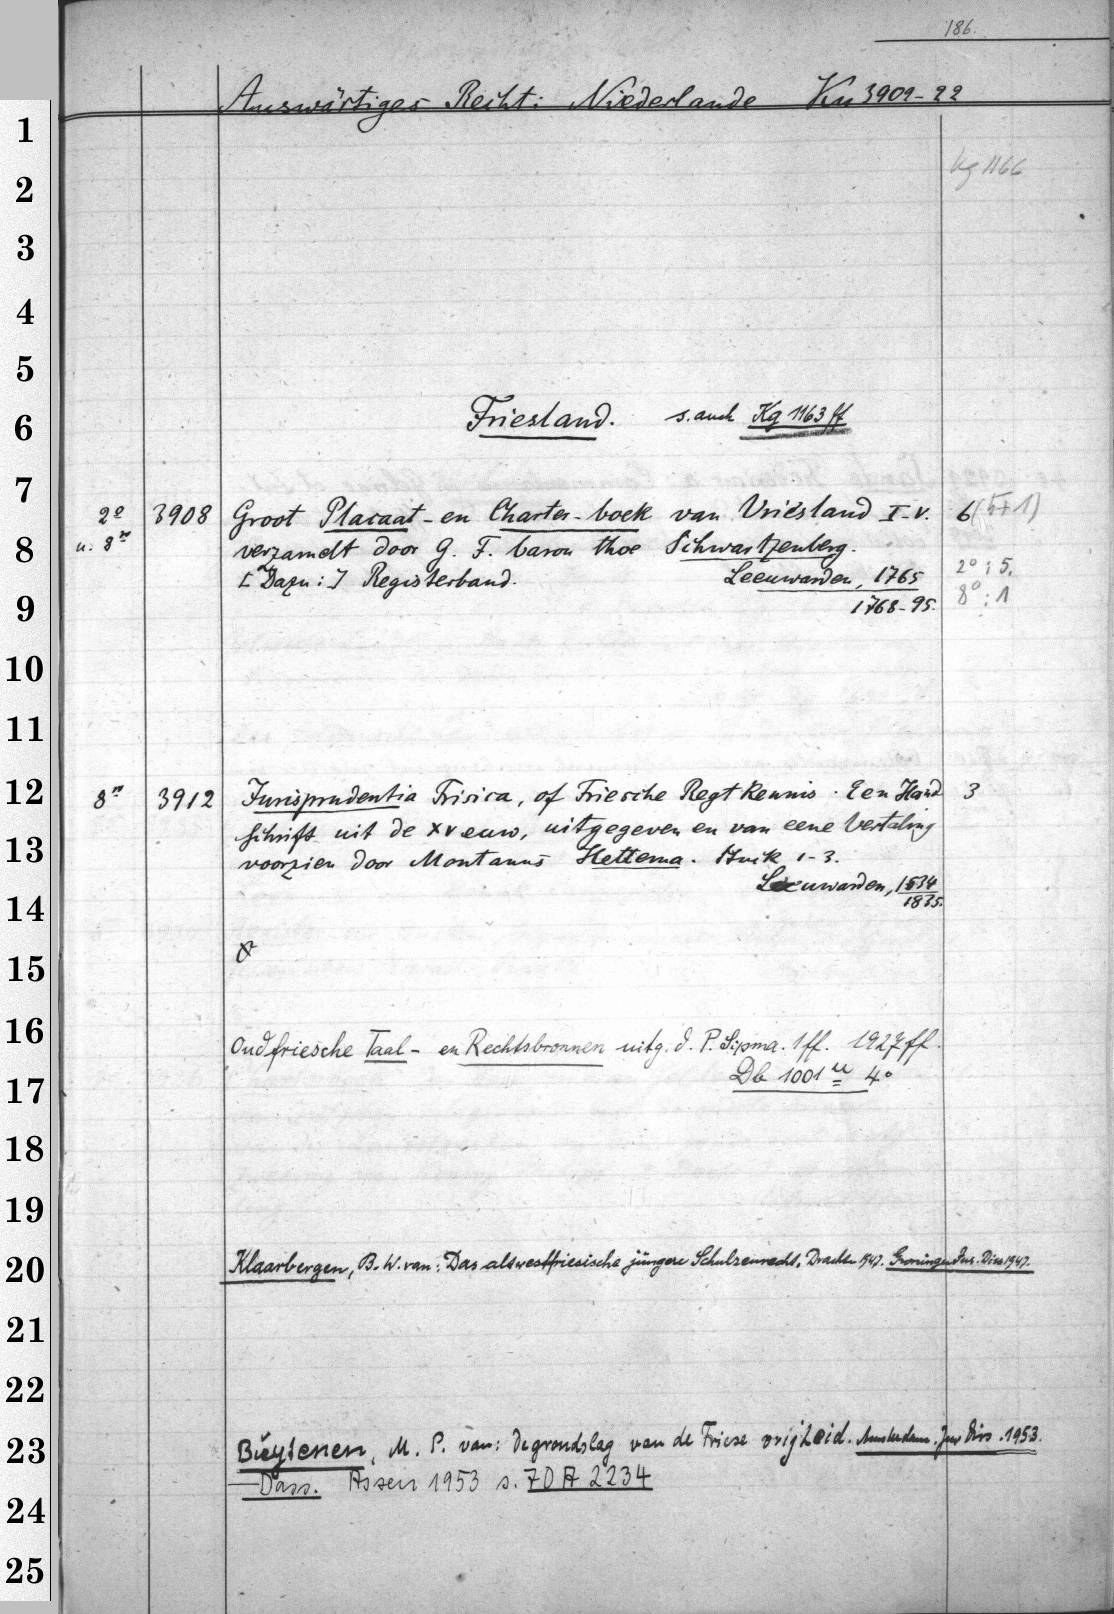 186.
Auswärtiges Recht: Niederlande Ku 3901-22
Kg 1166
Friesland. s. auch Kg 1163 ff
2º 3908 Groot Placaat- en Charter-boek van Vriesland I-V. 6 (5+1)
u. 8º verzamelt door G. F. baron thoe Schwartzenberg.
[Dazu:] Registerband. Leeuwarden, 1765 2º: 5.
1768-95. 8º: 1
8º 3912 Jurisprudentia Frisica, of Friesche Regtkennis. Een Hand 3
schrift uit de XV eeuw, uitgegeven en van eene Vertaling
voorzien door Montanus Hettema. Stuk 1-3.
Leeuwarden, 1834
1835.
Oudfriesche Taal- en Rechtsbronnen uitg. d. P. Sipma. 1ff. 1927ff.
Db 1001 u 4º
Klaarbergen, B. W. van: Das altwestfriesische jüngere Schulzenrecht. Drachten 1947. Groningen Jur. Diss 1947.
Bueytenen, M. P. van: De grondslag van de Friese vrijheid. Amsterdam. Jur Diss. 1953.
— Dass. Assen 1953 s. 70 A 2234
1
2
3
4
5
6
7
8
9
10
11
12
13
14
15
16
17
18
19
20
21
22
23
24
25